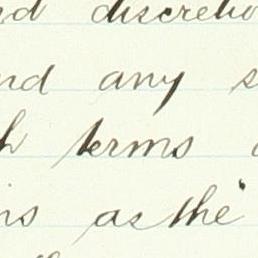 nd discretio
nd any s
h terms
ns as the